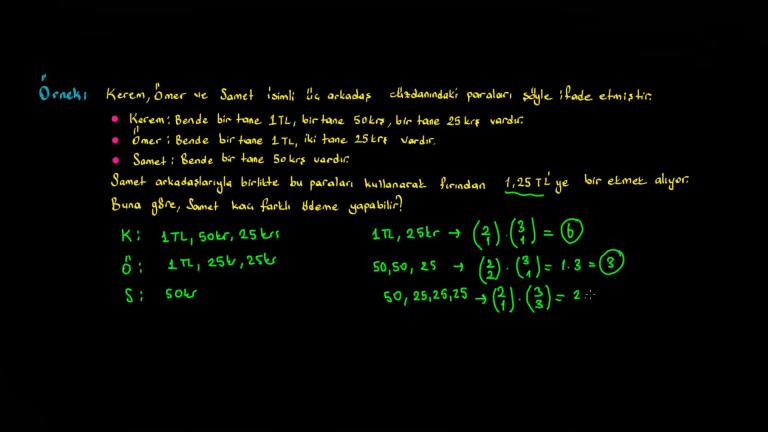 Örnek: Kerem, Ömer ve Samet isimli üç arkadaş cüzdanındaki paraları şöyle ifade etmiştir.
• Kerem: Bende bir tane 1TL, bir tane 50krş, bir tane 25 krş vardır.
• Ömer: Bende bir tane 1TL, iki tane 25krş vardır.
• Samet: Bende bir tane 50krş vardır.
Samet arkadaşlarıyla birlikte bu paraları kullanarak fırından 1,25 TL'ye bir ekmek alıyor.
Buna göre, Samet kaç farklı ödeme yapabilir?
K: 1TL, 50kr, 25krs 1TL, 25kr → (2 1) · (3 1) = 6
Ö: 1TL, 25kr, 25kr 50,50, 25 → (2 2) · (3 1) = 1.3 = 3
S: 50kr 50, 25,25,25 → (2 1) · (3 3) = 2